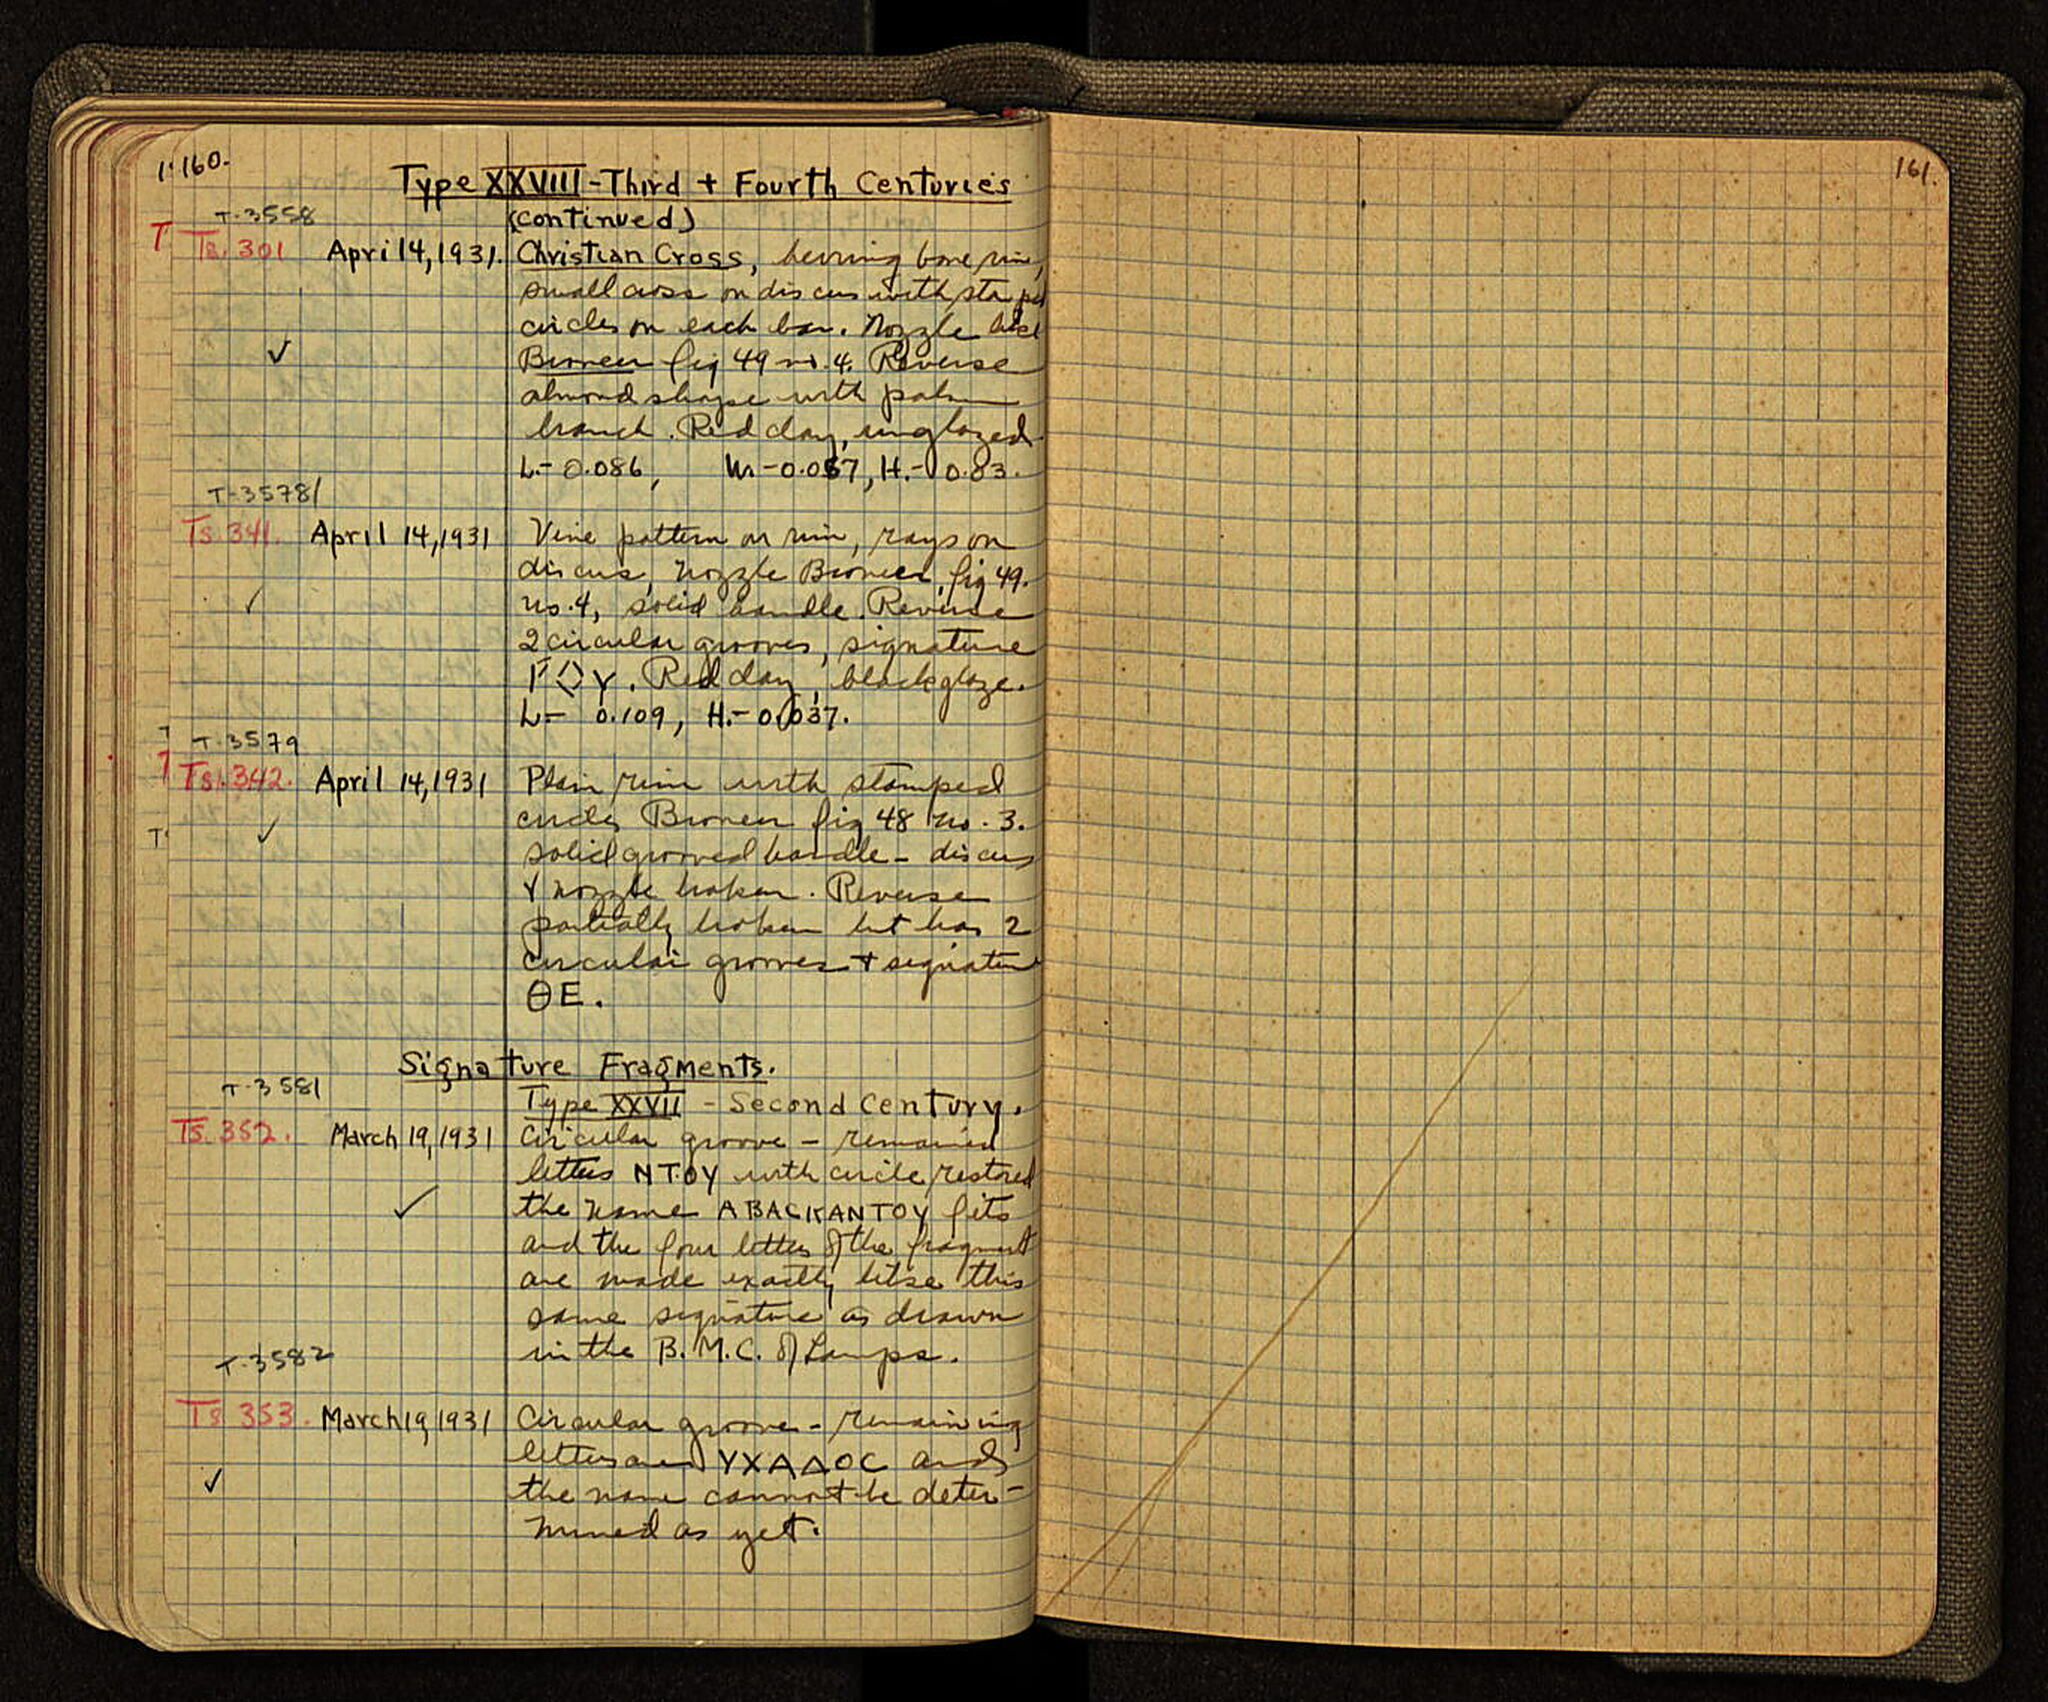 160.
161.
Type XXVIII - Third + Fourth Centuries
(continued)
T-3558
Ts. 301 April 14, 1931. Christian Cross, herring bone rim,
small cross on discus with stamped
circles on each bar. Nozzle like
Broneer fig 49 no. 4. Reverse
almond shape with palm
branch. Red clay, unglazed.
L.- 0.086, W.-0.057, H.- 0.03.
T-3578
Ts. 341. April 14, 1931 Vine pattern on rim, rays on
discus, nozzle Broneer, fig 49.
no. 4, solid handle. Reverse
2 circular grooves, signature
Red clay, black glaze.
L.- 0.109, H.- 0.037.
T-3579
Ts. 342. April 14, 1931 Plain rim with stamped
circles Broneer fig 48 no. 3.
solid grooved handle - discus
+ nozzle broken. Reverse
partially broken but has 2
circular grooves + signature
ΘE.
Signature Fragments.
T-3581
Type XXVII - Second Century.
Ts. 352. March 19, 1931 Circular groove - remaining
letters ΝΤΟΥ with circle restored
the name ΑΒΑCΚΑΝΤΟΥ fits
and the four letters of the fragment
are made exactly like this
same signature as drawn
in the B.M.C. of Lamps.
T-3582
Ts 353. March 19, 1931 Circular groove - remaining
letters are ΥΧΑΔΟC and
the name cannot be deter-
mined as yet.